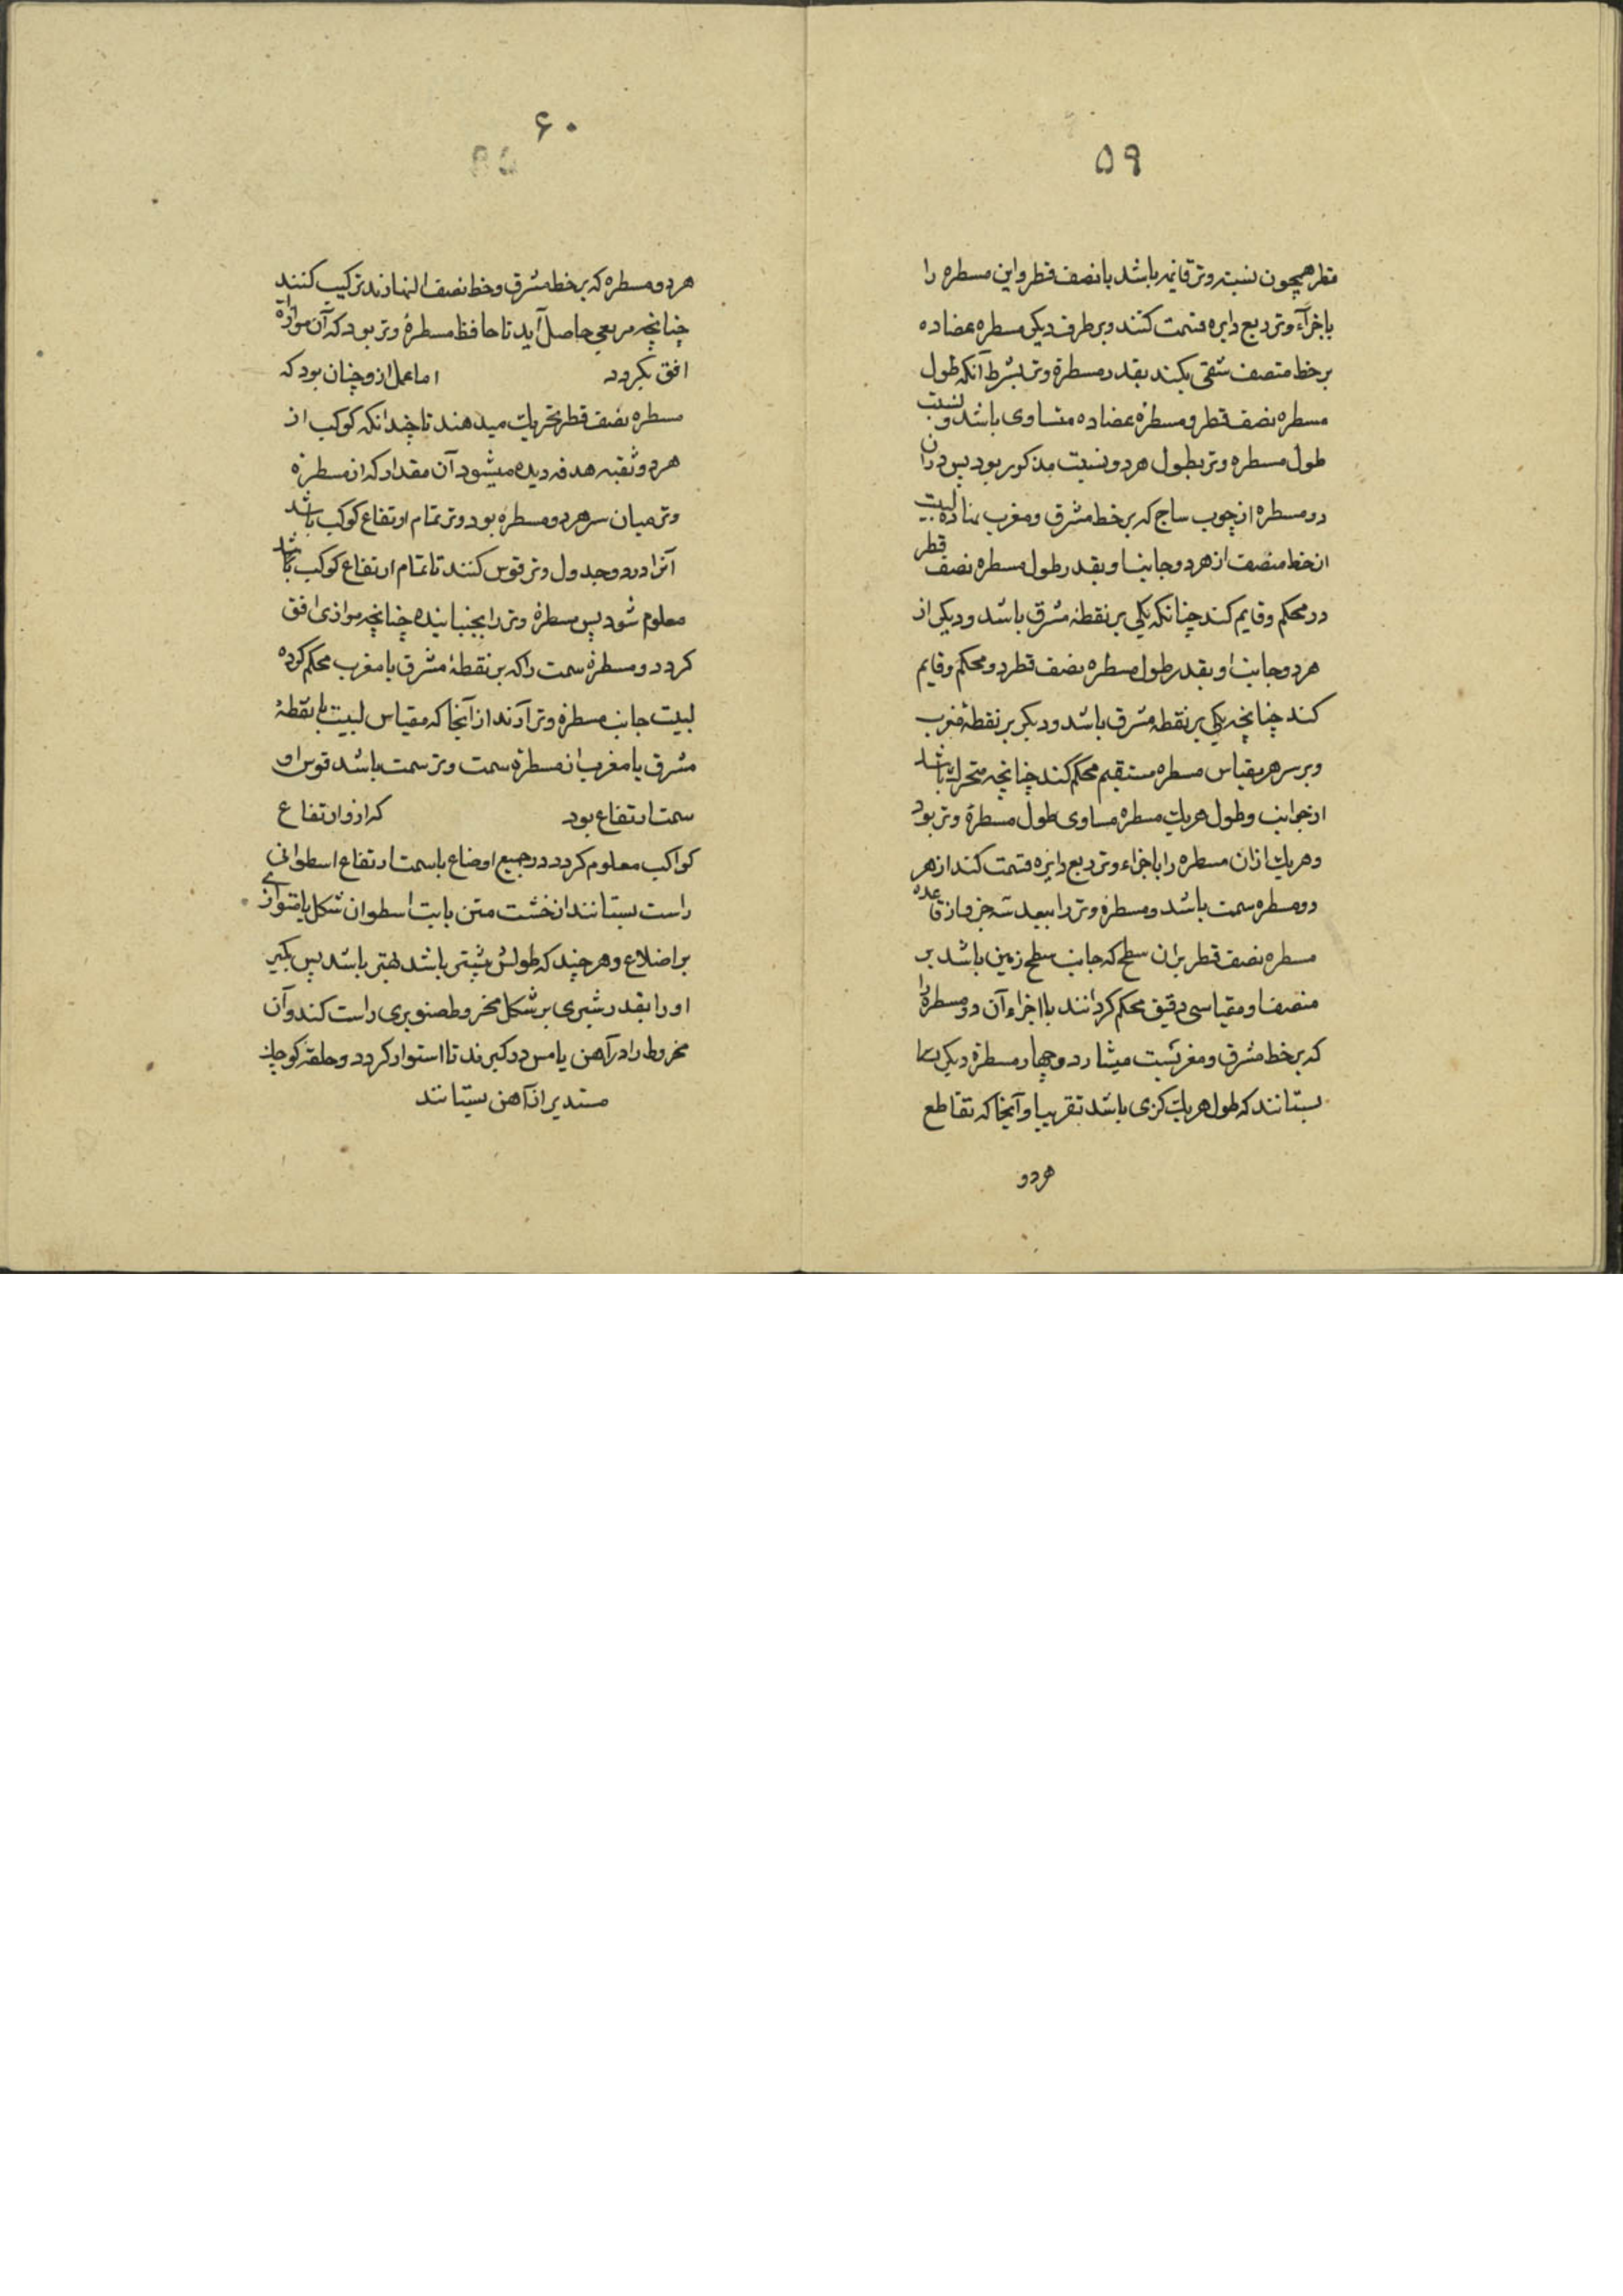 ۵۹
قطر همچون نسبت وتر قائمه باشد با نصف قطر و این مسطره را
باجزآء وتر ربع دایره قسمت کنند و بر طرف دیگر مسطره عضاده
بر خط منصف شقی بکنند بقدر مسطرهٔ وتر بشرط آنکه طول
مسطره نصف قطر و مسطرهٔ عضاده متساوی باشد و نسبت
طول مسطره وتر بطول هر دو نسبت مذکور بود پس بر دران
دو مسطره از چوب ساج که بر خط مشرق و مغرب نهاده لبیت
از خط منصف از هر دو جانب او بقدر طول مسطره نصف قطر
در محکم و قایم کند چنانکه یکی بر نقطهٔ مشرق باشد و دیگر از
هر دو جانب او بقدر طول مسطره نصف قطر دو محکم و قایم
کند چنانچه یکی بر نقطه مشرق باشد و دیگر بر نقطهٔ مغرب
و بر سر هر مقیاس مسطره مستقیم محکم کند چنانچه متحرک باشد
از جوانب و طول هر یک مسطره مساوی طول مسطرهٔ وتر بود
و هر یک ازان مسطره را باجزاء وتر ربع دایره قسمت کند از هر
دو مسطره سمت باشد و مسطرهٔ وتر را ببعد سه جزو از قاعده
مسطره نصف قطر بران سطح که جانب سطح زمین باشد بر
منصف او مقیاسی دقیق محکم کردانند با اجزاء آن دو مسطره را
که بر خط مشرق و مغربست میشارد و چهار مسطرهٔ دیگر
بستانند که طول هر یک کزی باشد تقریبا و آنجا که تقاطع
هر دو
۶۰
هر دو مسطره که بر خط مشرق و خط نصف النهارند ترکیب کنند
چنانچه مربعی حاصل آید تا حافظ مسطرهٔ وتر بود که آن موازاة
افق بکردد اما عمل ازو چنان بود که
مسطره نصف قطر تحریک میدهند تا چندانکه کوکب از
هر دو ثقبه هدفه دیده میشود آن مقدار که از مسطرهٔ
وتر میان سر هر دو مسطره بود وتر تمام ارتفاع کوکب باشد
آنرا در دو جدول وتر قوس کنند تا تمام ارتفاع کوکب باشد
معلوم شود پس مسطرهٔ وتر را بجنبانیده چنانچه موازی افق
کردد و مسطرهٔ سمت را که بر نقطهٔ مشرق یا مغرب محکم کرده
لبیت جانب مسطرهٔ وتر آرند از آنجا که مقیاس لبیت با نقطهٔ
مشرق یا مغرب از مسطرهٔ سمت وتر سمت باشد قوس او
سمت ارتفاع بود که ازو ارتفاع
کواکب معلوم کردد در جمیع اوضاع با سمت ارتفاع اسطوانی
راست بستانند از خشت متن بابت اسطوان شکل یا متوازی
بر اضلاع و هر چند که طولش بیشتر باشد بهتر باشد پس بکیر
او را بقدر شبری بر شکل مخروط صنوبری راست کند و آن
مخروط را در آهن یا مس در کیرند تا استوار کردد و حلقهٔ کوچک
مستدیر از آهن بستانند